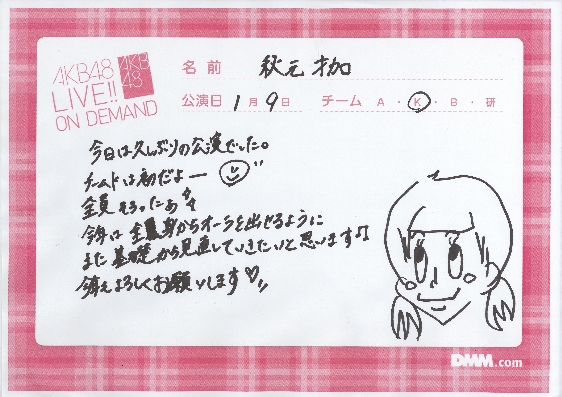 AKB48
LIVE!!
ON DEMAND
AKB
48
名前 秋元才加
公演日 1月9日 チーム A・K・B・研
今日は久しぶりの公演でした。
チームKは初だよー
全員そろったぁ
今年は全員身からオーラを出せるように
また基礎から見直していきたいと思います♪
今年もよろしくお願いします♡
DMM.com